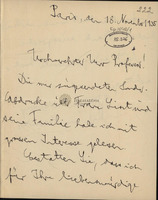 222
Paris, den 18. November 1935
Hochverehrter Herr Professor!
Die mir zugesandten Sonder-
abdrucke über Franz Liszt und
seine Familie habe ich mit
grossem Interesse gelesen.
Gestatten Sie, dass ich
für Ihre liebenswürdige